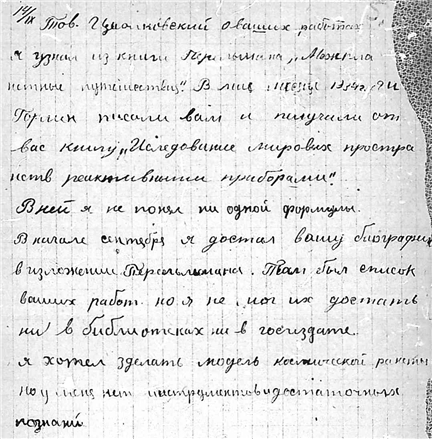 14/IX Тов. Циалковский о ваших работах
я узнал из книги Перельмана „Межпла
нетные путешествия". В мае месяце 1934г. Я и
писали вам и получили от
вас книгу „Иследование мировых простра
нств реактивными приборами".
В ней я не понял ни одной формулы.
В начале сентября я достал вашу биографию
в изложении Перельмана. Там был список
ваших работ но я не мог их достать
ни в библиотеках ни в госиздате.
я хотел зделать модель космической ракеты
но у меня нет инструментов и достаточных
познаний